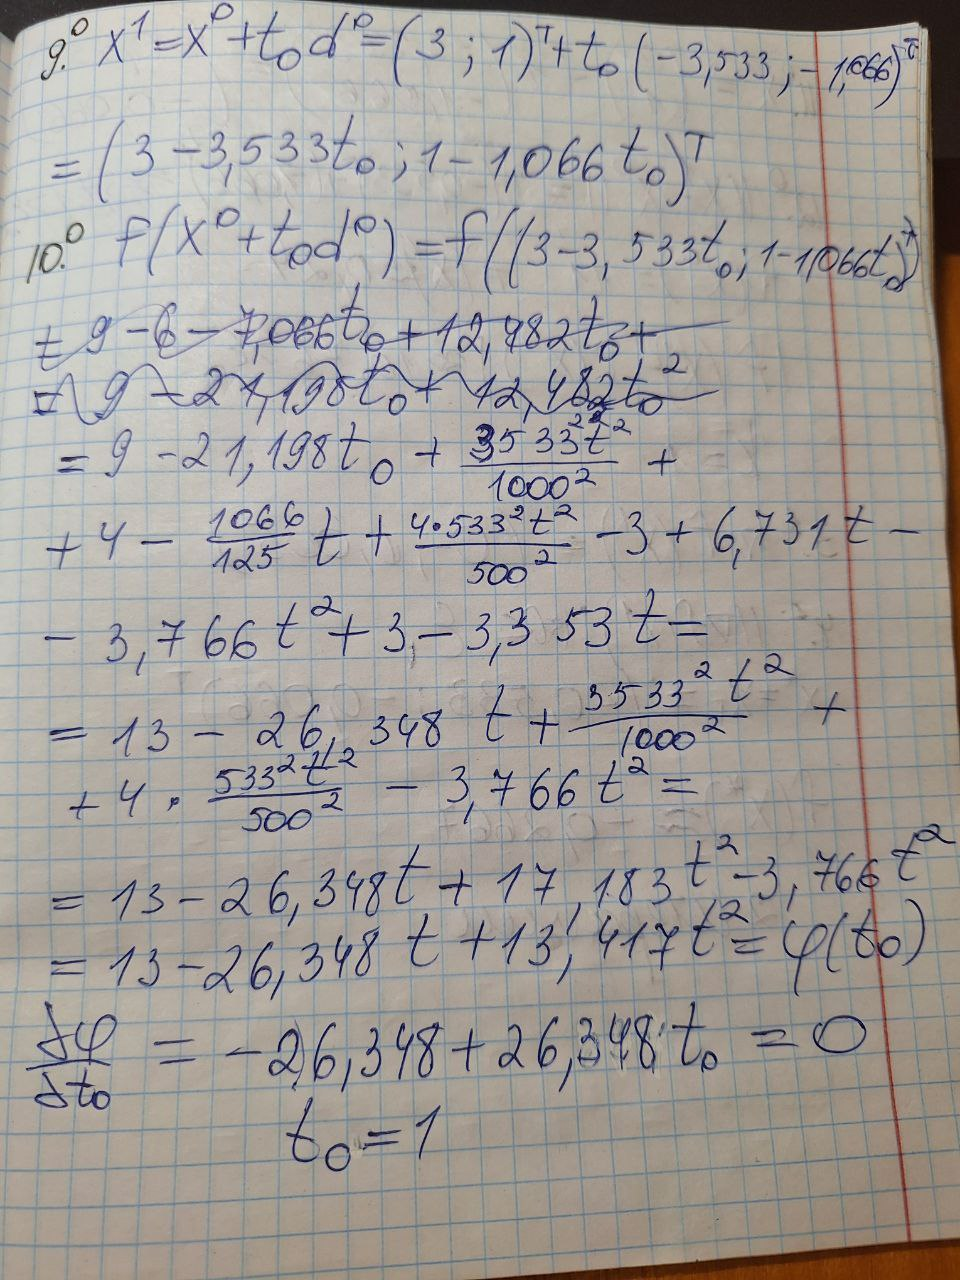 9.⁰ x¹ = x⁰ + t₀d⁰ = (3 ; 1)ᵀ + t₀ (-3,533 ; -1,066)ᵀ
= (3 - 3,533t₀ ; 1 - 1,066t₀)ᵀ
10.⁰ f(x⁰ + t₀d⁰) = f((3 - 3,533t₀ ; 1 - 1,066t₀)ᵀ)
= 9 - 6 - 7,066t₀ + 12,482t₀² +
= 9 - 21,198t₀ + 12,482t₀²
= 9 - 21,198t₀ + 3533²t²/1000² +
+ 4 - 1066/125 t + 4·533²t²/500² - 3 + 6,731t -
- 3,766t² + 3 - 3,353t =
= 13 - 26,348t + 3533²t²/1000² +
+ 4 · 533²t²/500² - 3,766t² =
= 13 - 26,348t + 17,183t² - 3,766t²
= 13 - 26,348t + 13,417t² = φ(t₀)
dφ/dt₀ = -26,348 + 26,348t₀ = 0
t₀ = 1